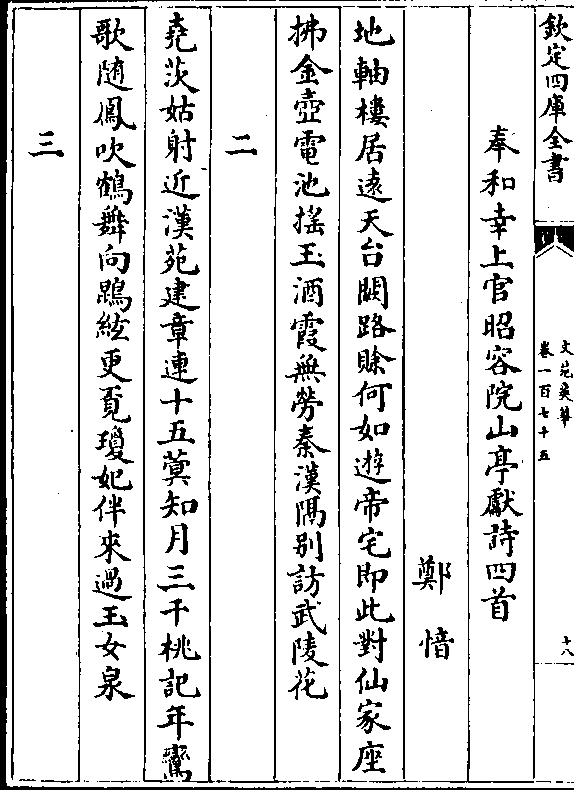 欽定四庫全書
文苑英華
卷一百七十五
十八
奉和幸上官昭容院山亭獻詩四首
鄭愔
地軸樓居遠天台闕路賖何如遊帝宅即此對仙家座
拂金壺電池揺玉酒霞無勞秦漢隔别訪武陵花
二
堯茨姑射近漢苑建章連十五蓂知月三千桃記年鸞
歌随鳳吹鶴舞向鵾絃更覔瓊妃伴來過玉女泉
三